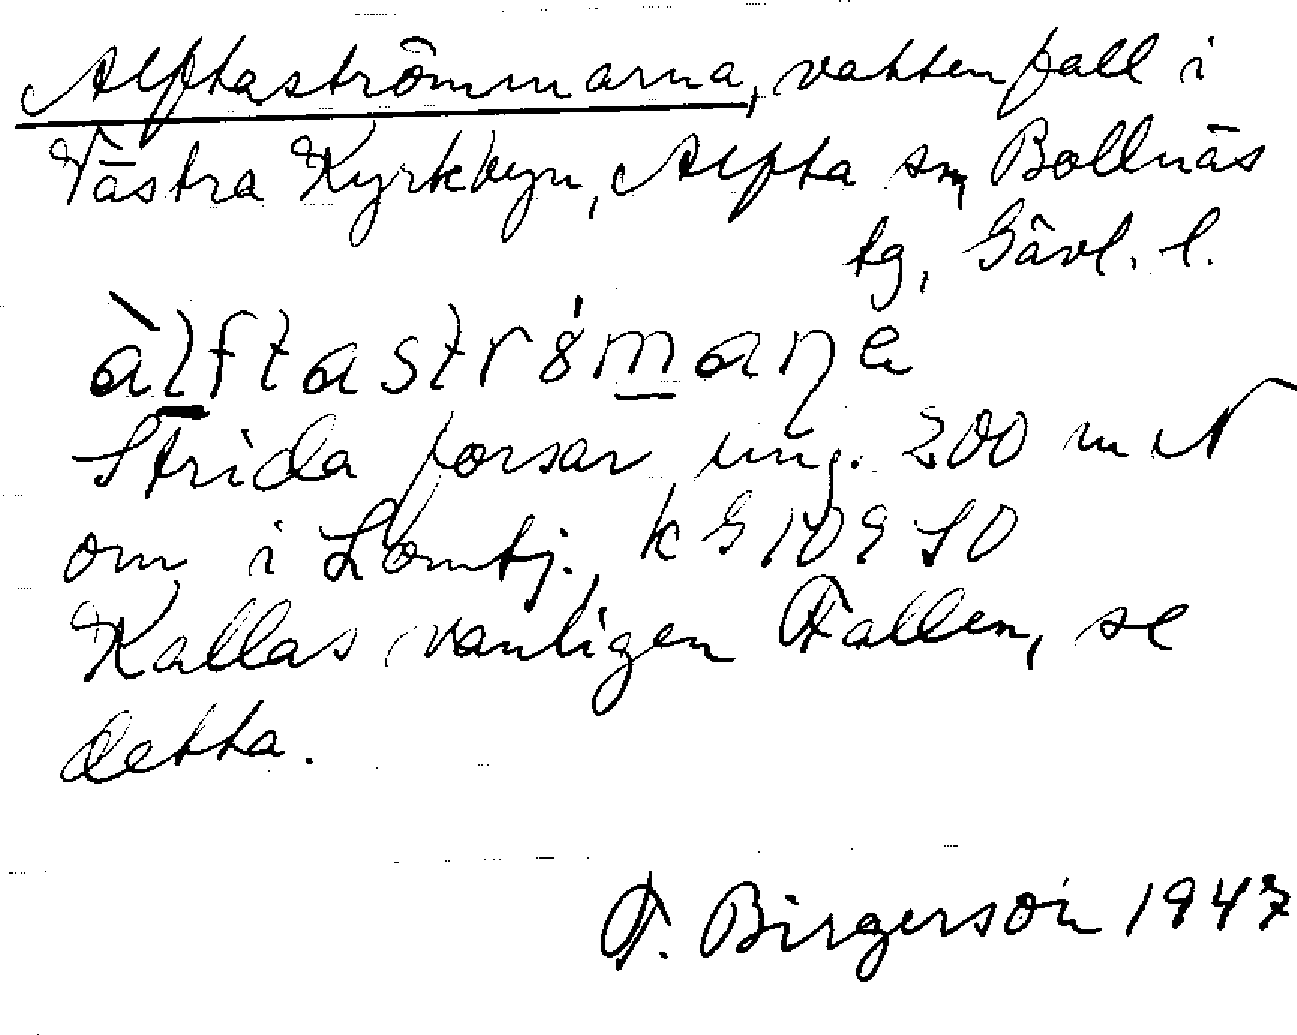 Alftaströmmarna, vattenfall i
Västra Kyrkbyn, Alfta sn, Bollnäs
tg, Gävl. l.
àlftaströ́manə
Strida forsar ung. 200 m N
om i Lomtj. k G 109 SO
Kallas vanligen Fallen, se
detta.
F. Birgerson 1947